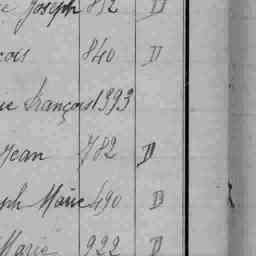 Joseph 812 D
cois 840 D
ie François 1393
Jean 782 D
ph Marie 490 D
Marie 922 D